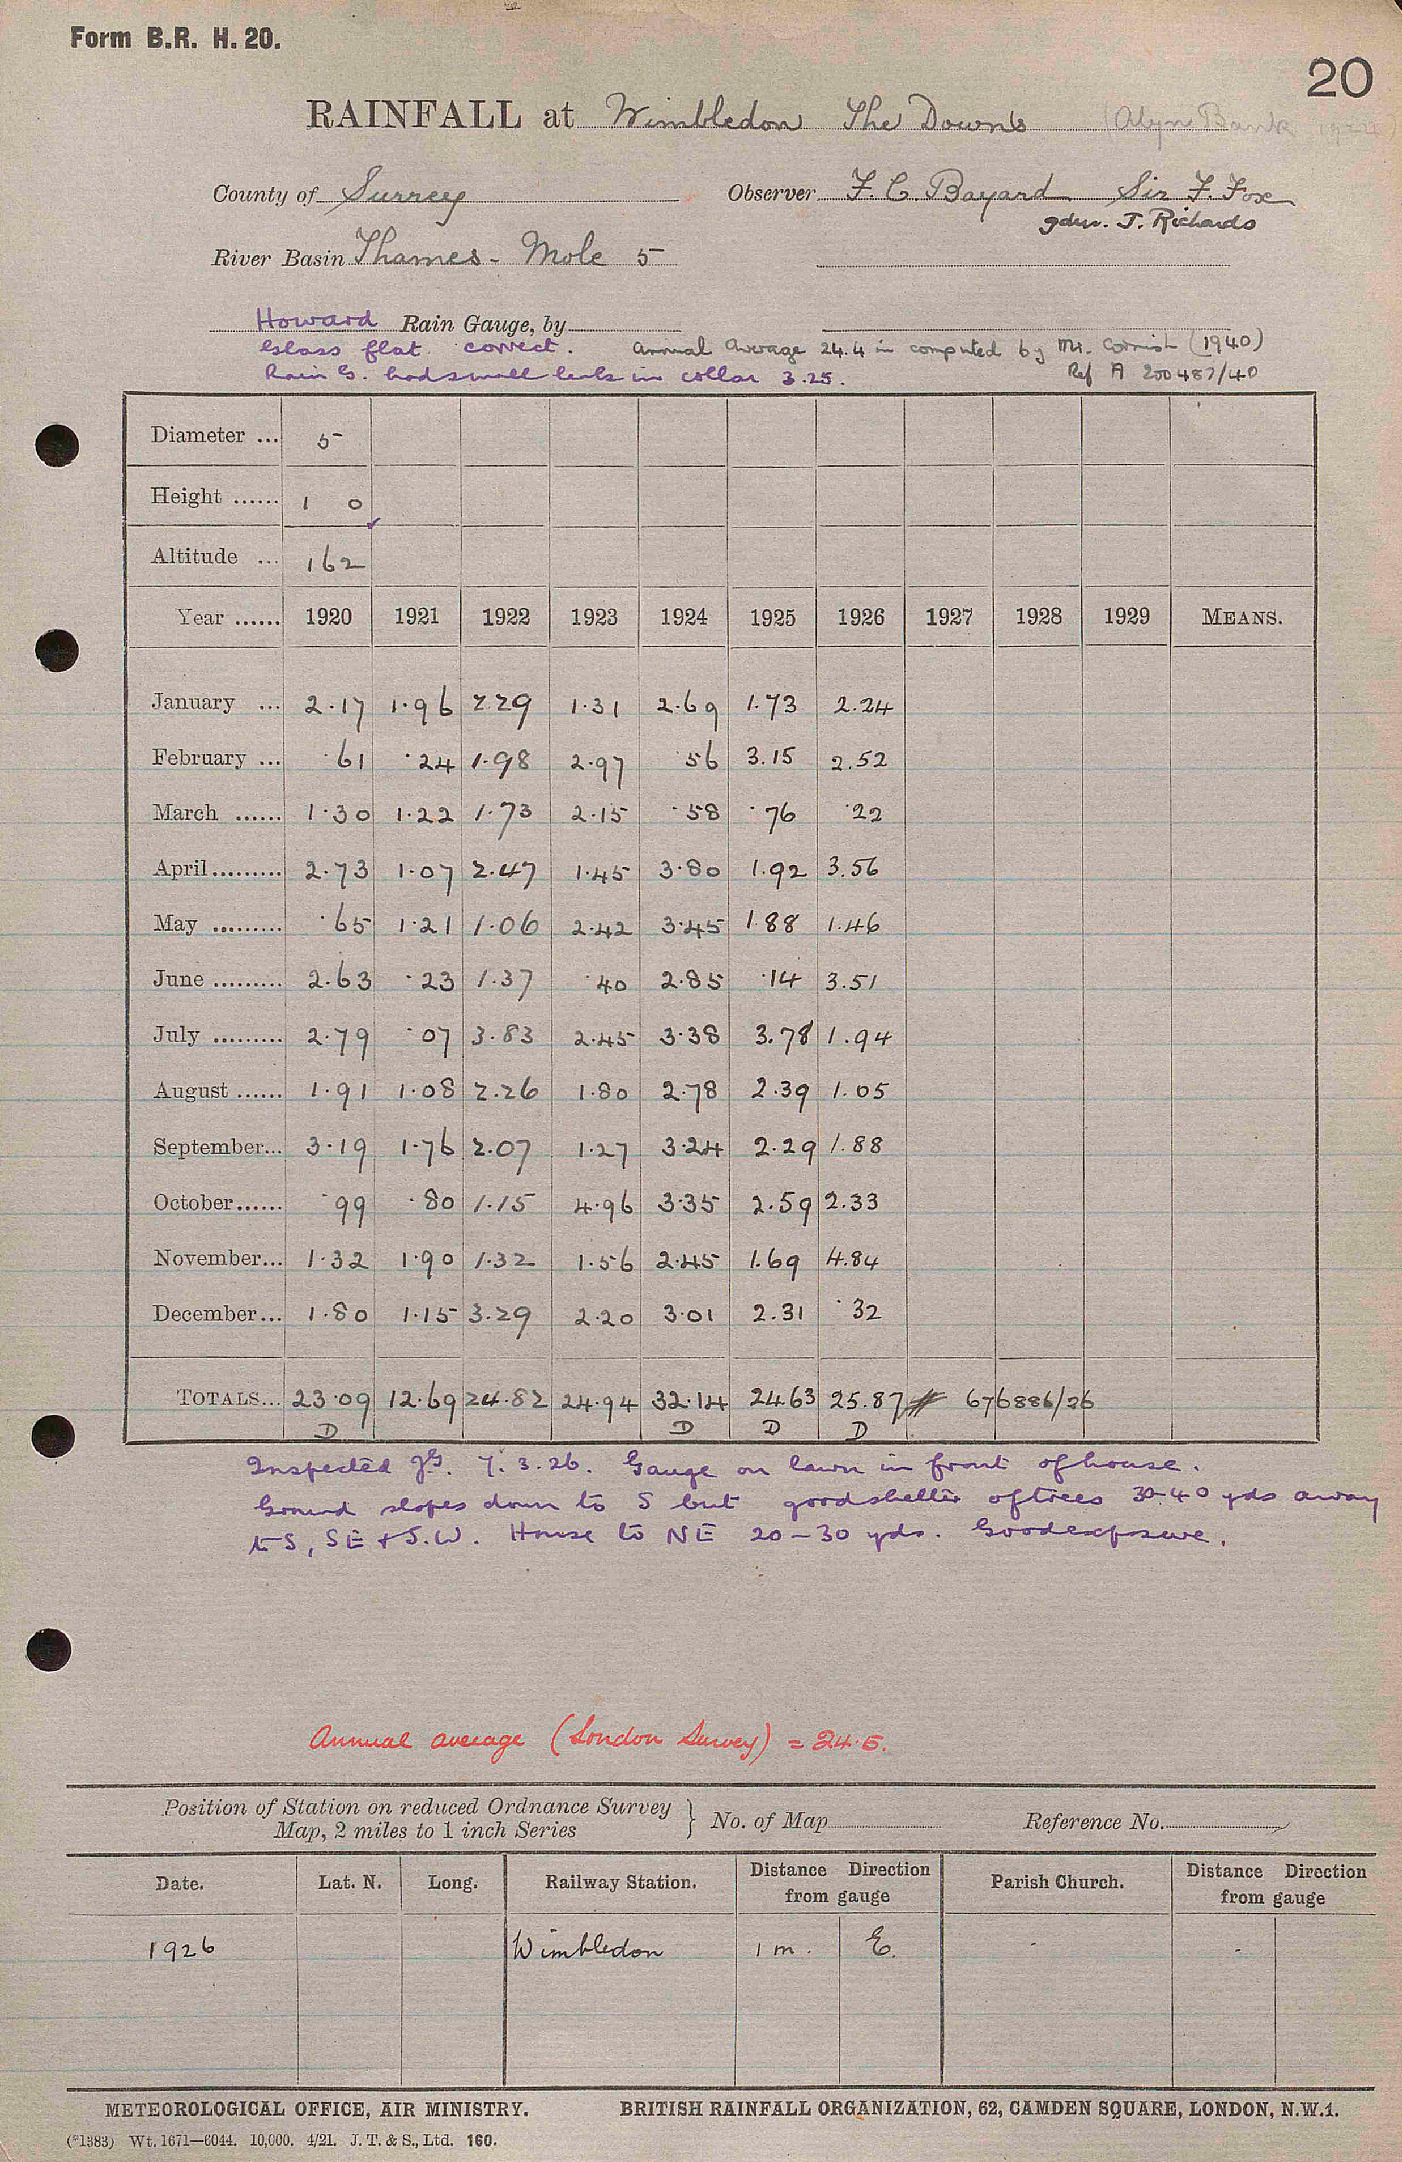 Form B.R. H. 20.
20
RAINFALL at Wimbledon The Downs (Alyn Bank 1924)
County of Surrey Observer F. C. Bayard Sir F. Fox
gdnr. J. Richards
River Basin Thames - Mole 5
Howard Rain Gauge, by
Glass flat. correct. Annual Average 24.4 in computed by Mr. Cornish (1940)
Rain G. had small leak in collar 3.25. Ref A 200487/40
Diameter ... 5
Height ...... 1 0
Altitude ... 162
Year ...... 1920 1921 1922 1923 1924 1925 1926 1927 1928 1929 MEANS.
January ... 2.17 1.96 2.29 1.31 2.69 1.73 2.24
February ... .61 .24 1.98 2.97 .56 3.15 2.52
March ...... 1.30 1.22 1.73 2.15 .58 .76 .22
April ......... 2.73 1.07 2.47 1.45 3.80 1.92 3.56
May ......... .65 1.21 1.06 2.42 3.45 1.88 1.46
June ......... 2.63 .23 1.37 .40 2.85 .14 3.51
July ......... 2.79 .07 3.83 2.45 3.38 3.78 1.94
August ...... 1.91 1.08 2.26 1.80 2.78 2.39 1.05
September... 3.19 1.76 2.07 1.27 3.24 2.29 1.88
October...... .99 .80 1.15 4.96 3.35 2.59 2.33
November... 1.32 1.90 1.32 1.56 2.45 1.69 4.84
December... 1.80 1.15 3.29 2.20 3.01 2.31 .32
TOTALS... 23.09 12.69 24.82 24.94 32.14 24.63 25.87 # 676886/26
D D D D
Inspected JG. 7.3.26. Gauge on lawn in front of house.
Ground slopes down to S but good shelter of trees 30-40 yds away
to S, SE + S.W. House to NE 20-30 yds. Good exposure.
Annual average (London Survey) = 24.5.
Position of Station on reduced Ordnance Survey
Map, 2 miles to 1 inch Series } No. of Map Reference No.
Date. Lat. N. Long. Railway Station. Distance Direction from gauge Parish Church. Distance Direction from gauge
1926 Wimbledon 1 m. E. - -
METEOROLOGICAL OFFICE, AIR MINISTRY. BRITISH RAINFALL ORGANIZATION, 62, CAMDEN SQUARE, LONDON, N.W.1.
(*1383) Wt. 1671—6044. 10,000. 4/21. J. T. & S., Ltd. 160.